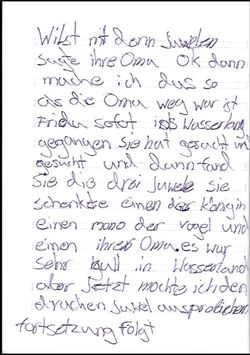 Wilst mit denn Juwelen
sagte ihre Oma Ok dann
mache ich das so
als die Oma weg war ist
Frida sofort ins Wasserland
gegangen Sie hat gesucht und
gesucht und dann fand
Sie die drei Juwele sie
schenkte einen der Köngin
einen mono der vogel und
einen ihrer Oma. es war
sehr kull in Wasserland
aber jetzt möchte ich den
drachen Juwel ausprobieren
fortsetzung folgt